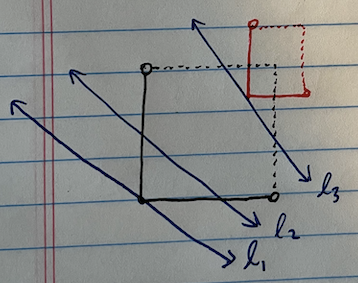 l₃
l₂
l₁